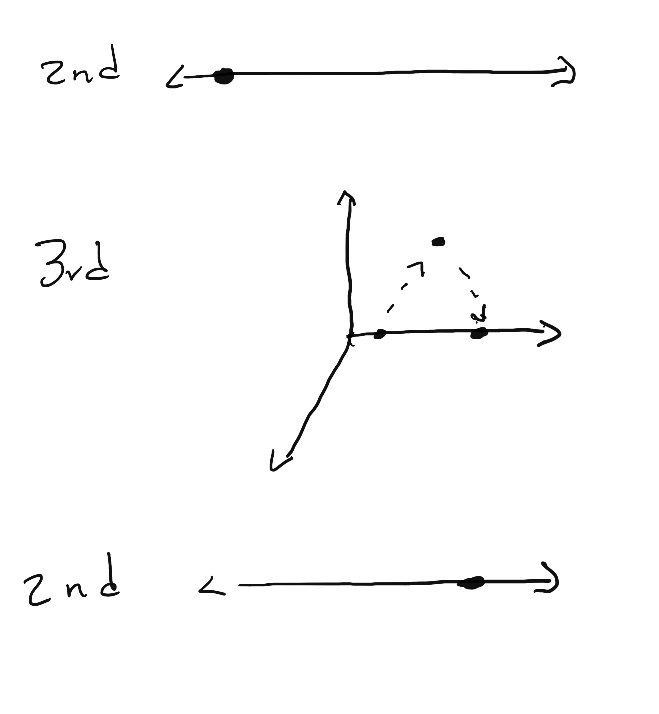 2nd
3rd
2nd